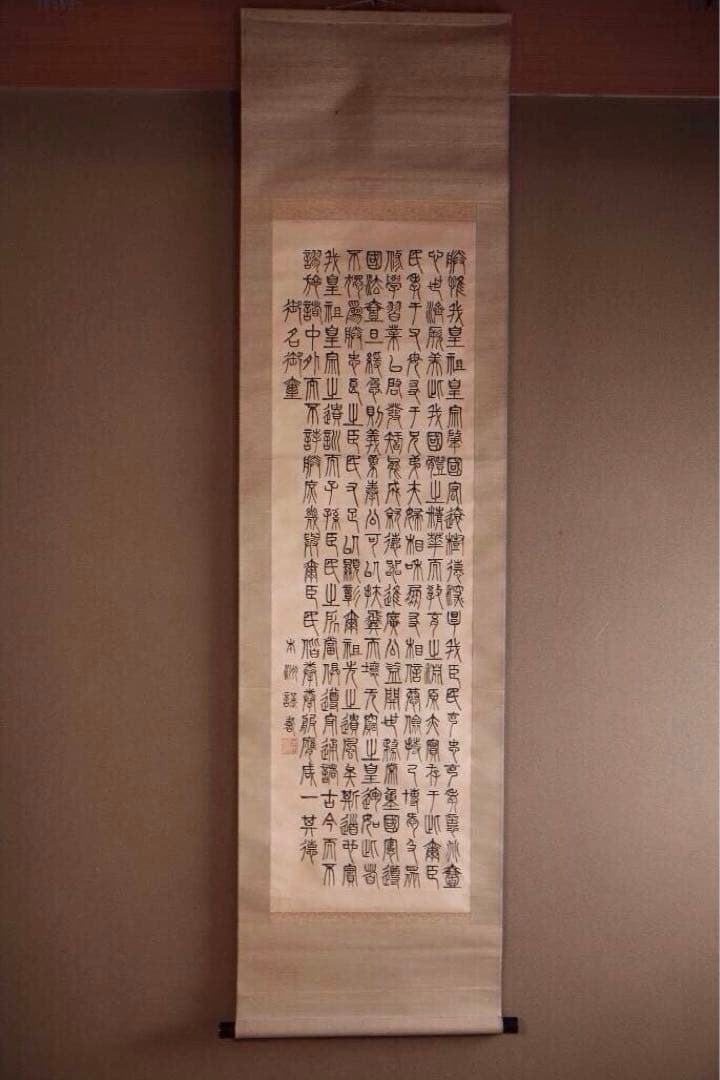 朕惟我皇祖皇宗肇國宏遠樹德深厚我臣民克忠克孝億兆壹
心世濟厥美此我國體之精華而教育之淵原亦實存于此爾臣
民孝于父母友于兄弟夫婦相和朋友相信恭儉持己博愛及衆
修學習業以啓發智能成就德器進廣公益開世務常重國憲遵
國法壹旦緩急則義勇奉公可以扶翼天壤无窮之皇運如此者
不爲朕忠良之臣民又足以顯彰爾祖先之遺風矣斯道也實
我皇祖皇宗之遺訓而子孫臣民之所當俱遵守通諸古今而不
謬施諸中外而不誖朕庶幾與爾臣民偕拳拳服膺咸一其德
御名御璽
謹書